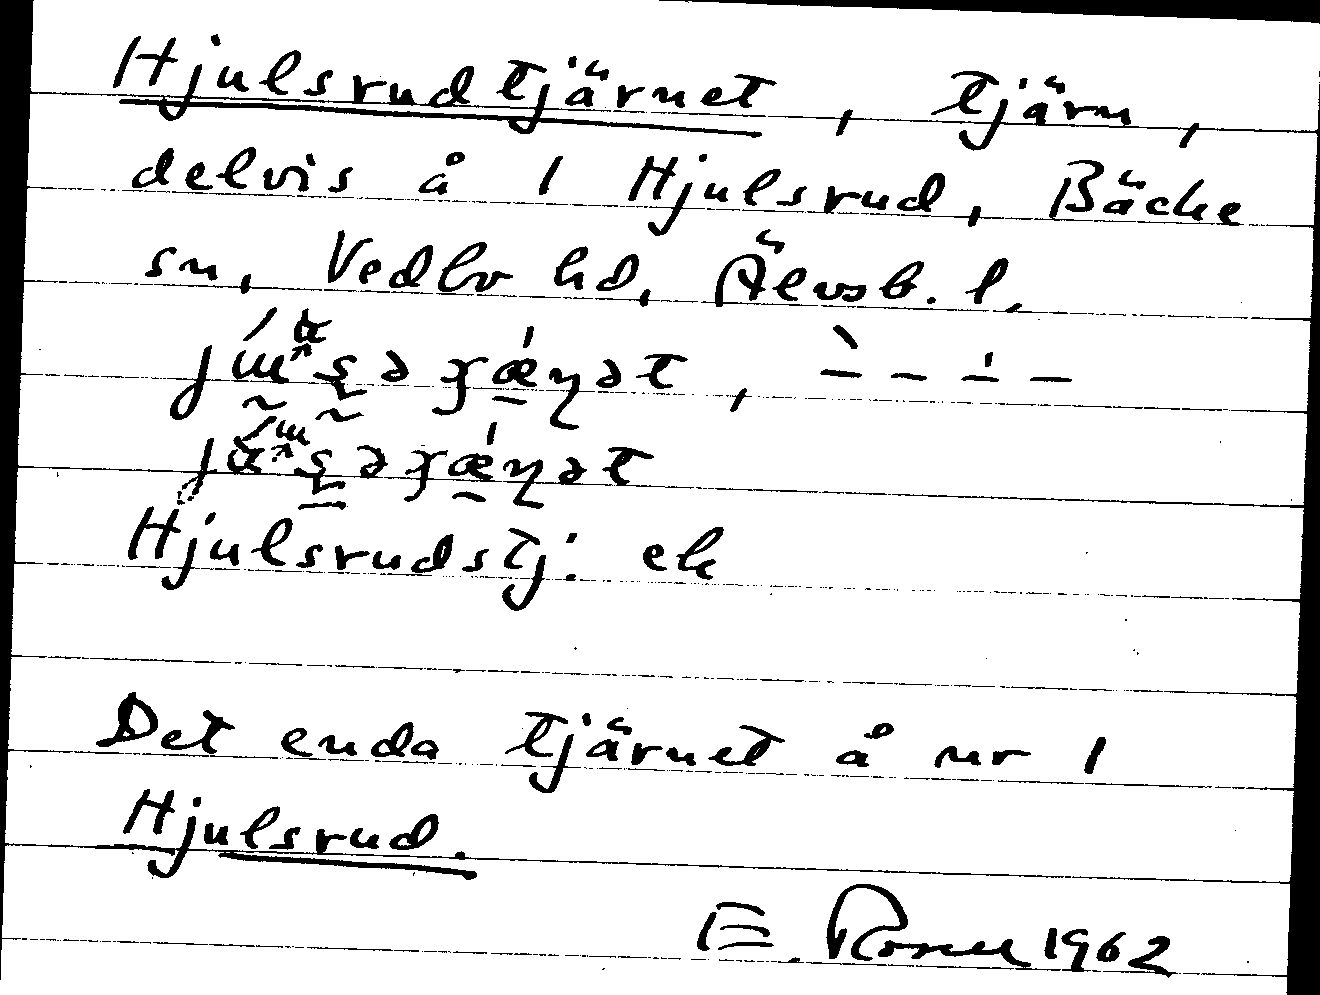 Hjulsrudtjärnet, tjärn,
delvis å 1 Hjulsrud, Bäcke
sn, Vedbo hd, Älvsb. l.
Hjulsrudstj: ek
Det enda tjärnet å nr 1
Hjulsrud.
E. 1962